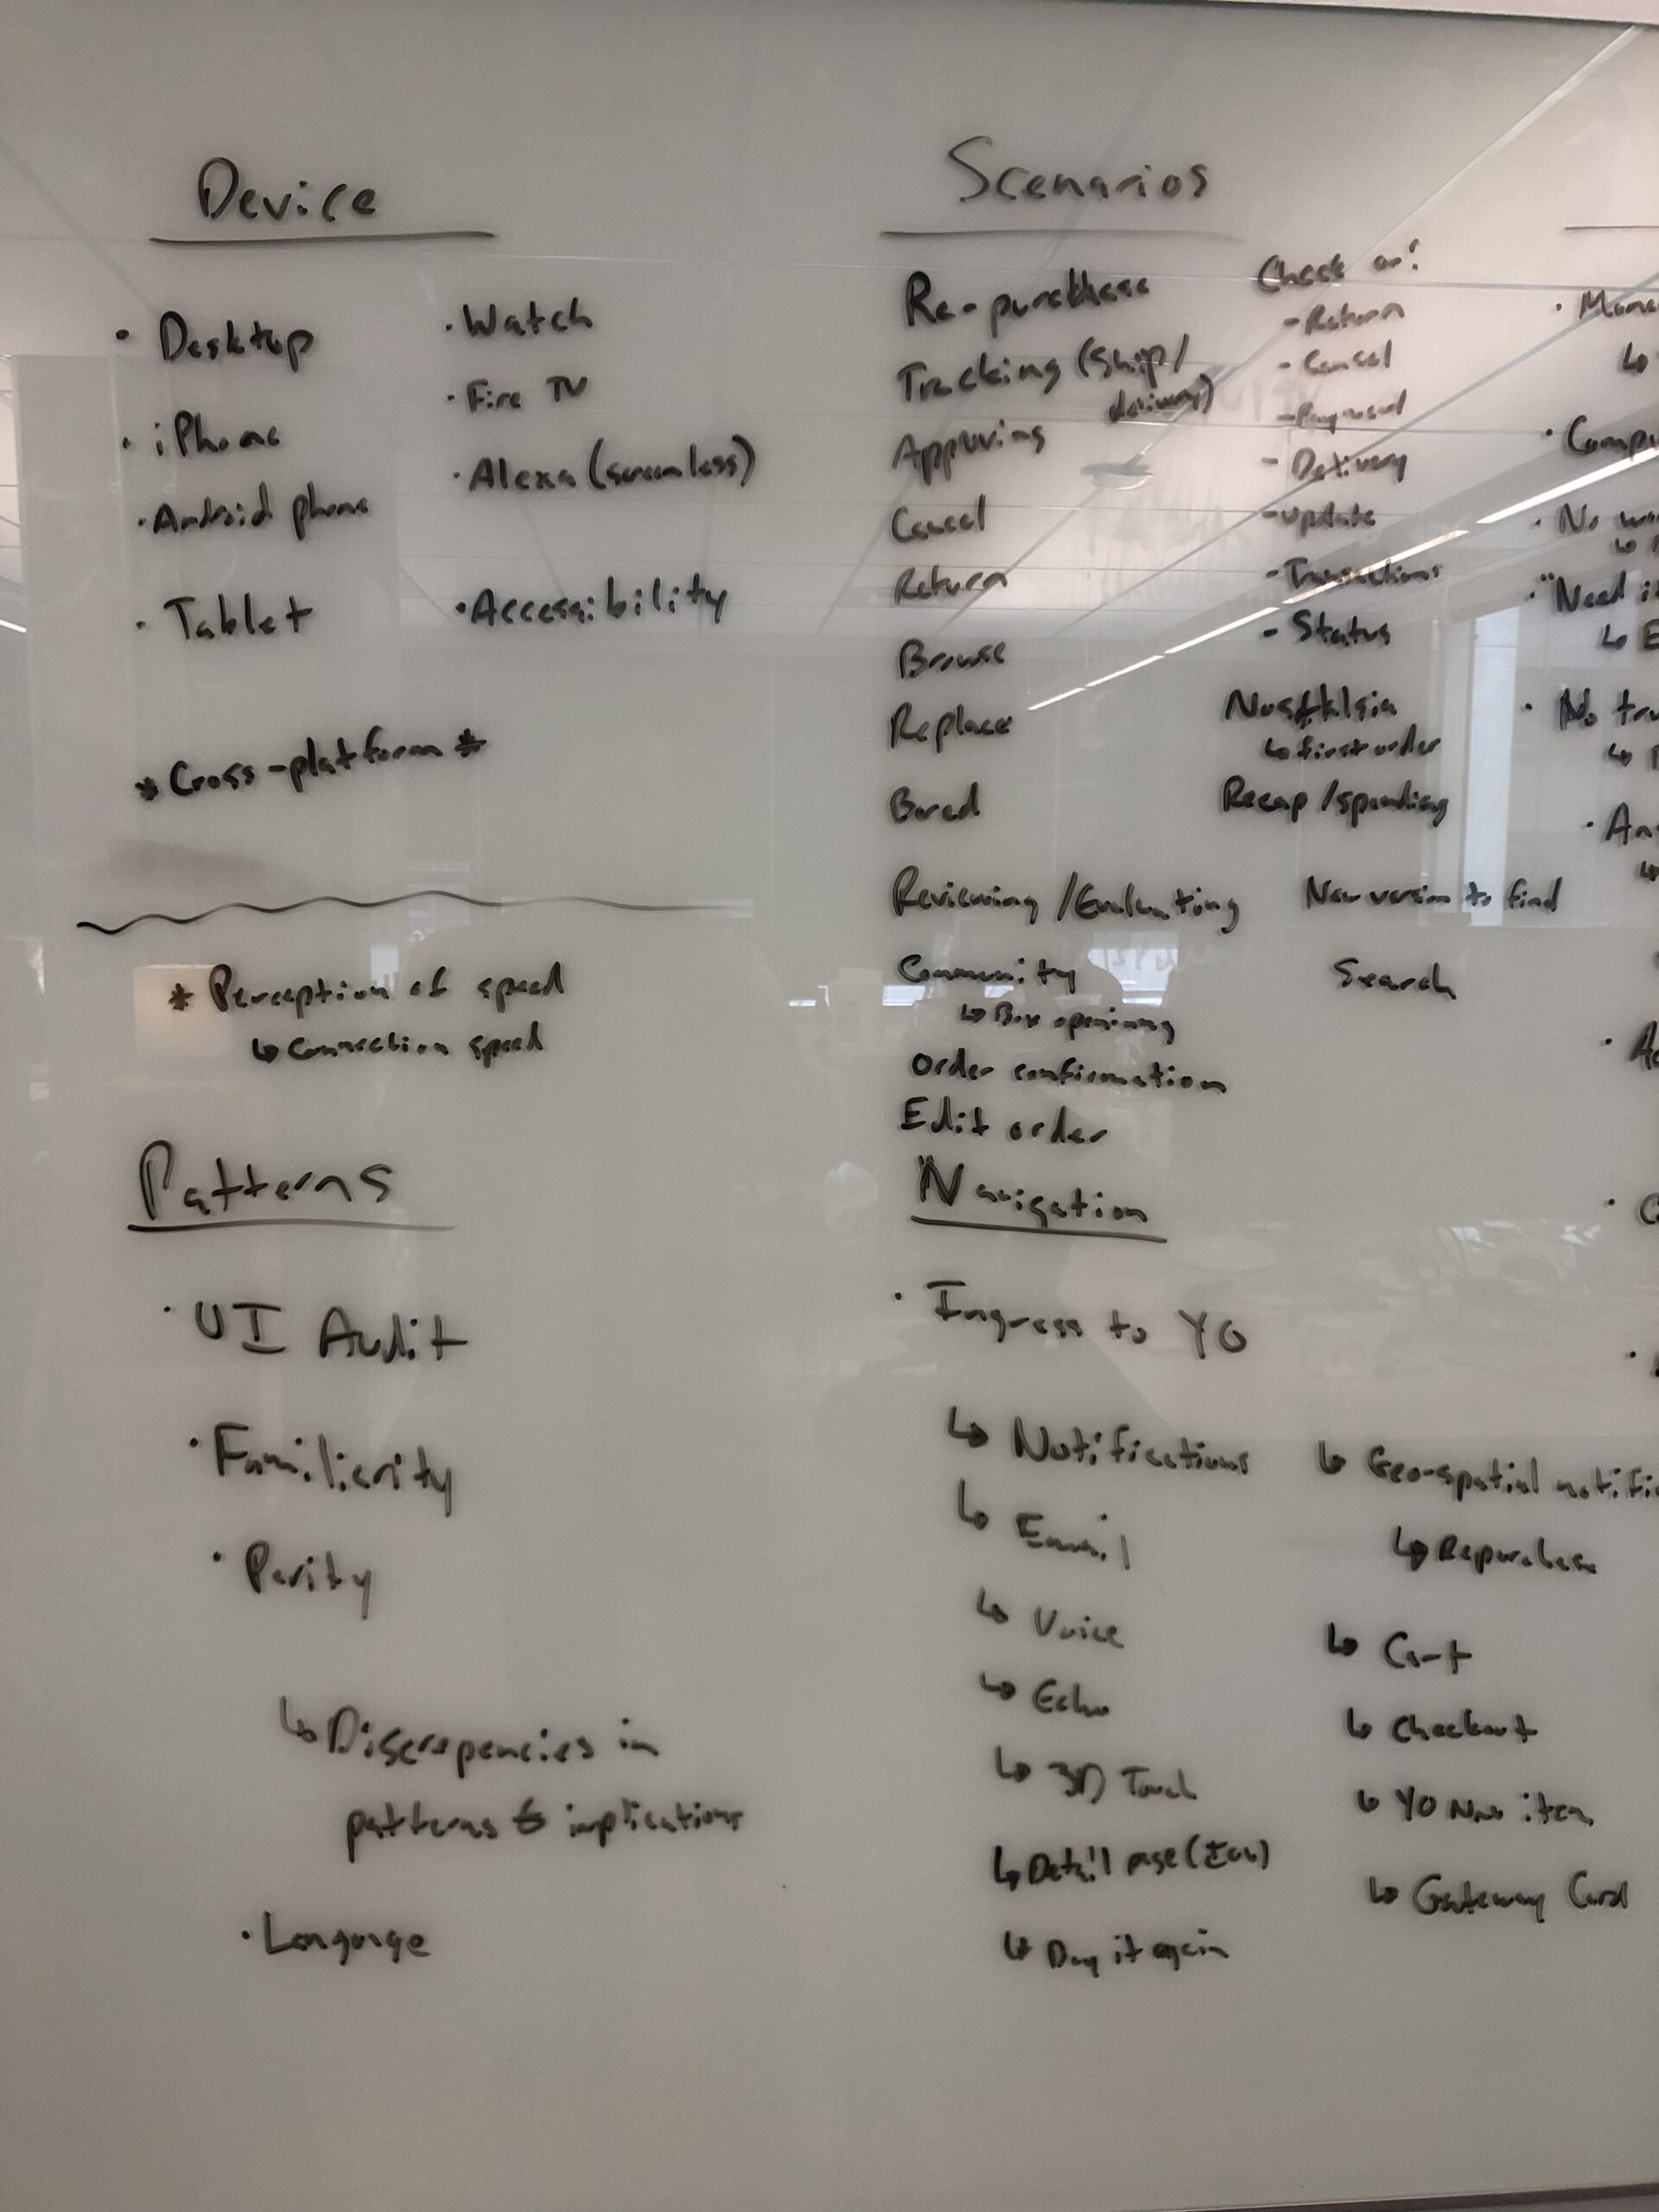 Device
• Desktop
• iPhone
• Android phone
• Tablet
• Watch
• Fire TV
• Alexa (screenless)
• Accessibility
* Cross-platform *
* Perception of speed
↳ Connection speed
Patterns
• UI Audit
• Familiarity
• Parity
↳ Discrepencies in
patterns & implications
• Language
Scenarios
Re-purchase
Tracking (Ship/
delivery)
Approving
Cancel
Return
Browse
Replace
Bored
Reviewing / Evaluating
Community
↳ Box opening
Order confirmation
Edit order
Check on:
- Return
- Cancel
- Payment
- Delivery
- update
- Transactions
- Status
Nostalgia
↳ first order
Recap / spending
New version to find
Search
Navigation
• Ingress to YO
↳ Notifications
↳ Email
↳ Voice
↳ Echo
↳ 3D Touch
↳ Detail page
↳ Buy it again
↳ Geo-spatial notific
↳ Repurchase
↳ Cart
↳ Checkout
↳ YO Nav item
↳ Gateway Card
•
• Comp
• No
• "Need it
↳ E
• No tru